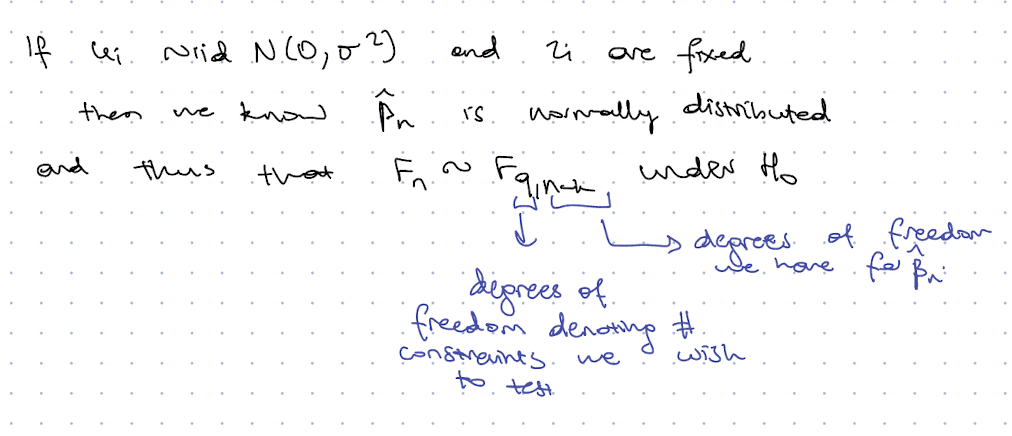 If uᵢ ~ iid N(0, σ²) and zᵢ are fixed
then we know β̂ₙ is normally distributed
and thus that Fₙ ~ F_{q, n-k} under H₀
degrees of freedom
we have for β̂ₙ.
degrees of
freedom denoting #
constraints we wish
to test